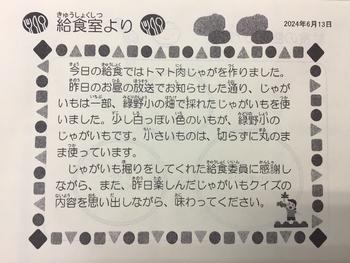 給食室より
2024年6月13日
今日の給食ではトマト肉じゃがを作りました。
昨日のお昼の放送でお知らせした通り、じゃが
いもは一部、緑野小の畑で採れたじゃがいもを使
いました。少し白っぽい色のいもが、緑野小の
じゃがいもです。小さいものは、切らずに丸のま
ま使っています。
じゃがいも掘りをしてくれた給食委員に感謝し
ながら、また、昨日楽しんだじゃがいもクイズの
内容を思い出しながら、味わってください。